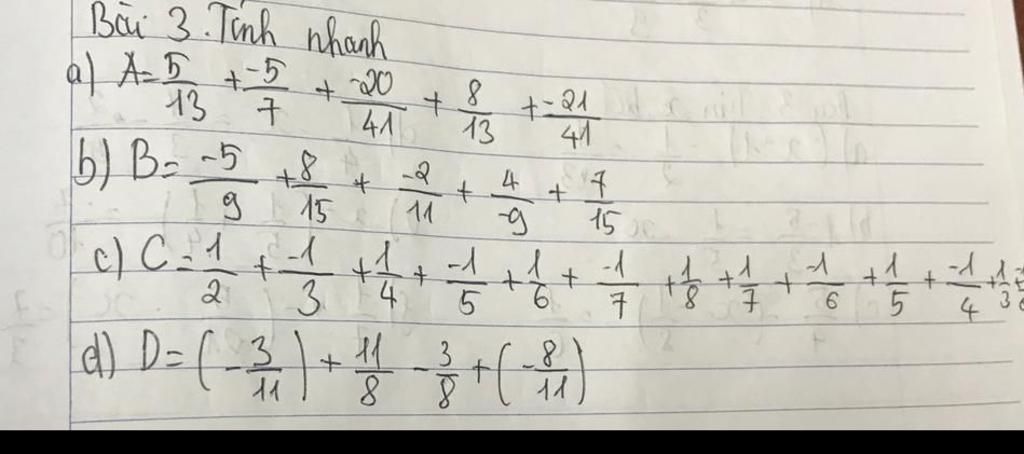 Bài 3. Tính nhanh
a) A = 5/13 + -5/7 + -20/41 + 8/13 + -21/41
b) B = -5/9 + 8/15 + -2/11 + 4/-9 + 7/15
c) C = 1/2 + -1/3 + 1/4 + -1/5 + 1/6 + -1/7 + 1/8 + 1/7 + -1/6 + 1/5 + -1/4 + 1/3
d) D = (-3/11) + 11/8 - 3/8 + (-8/11)